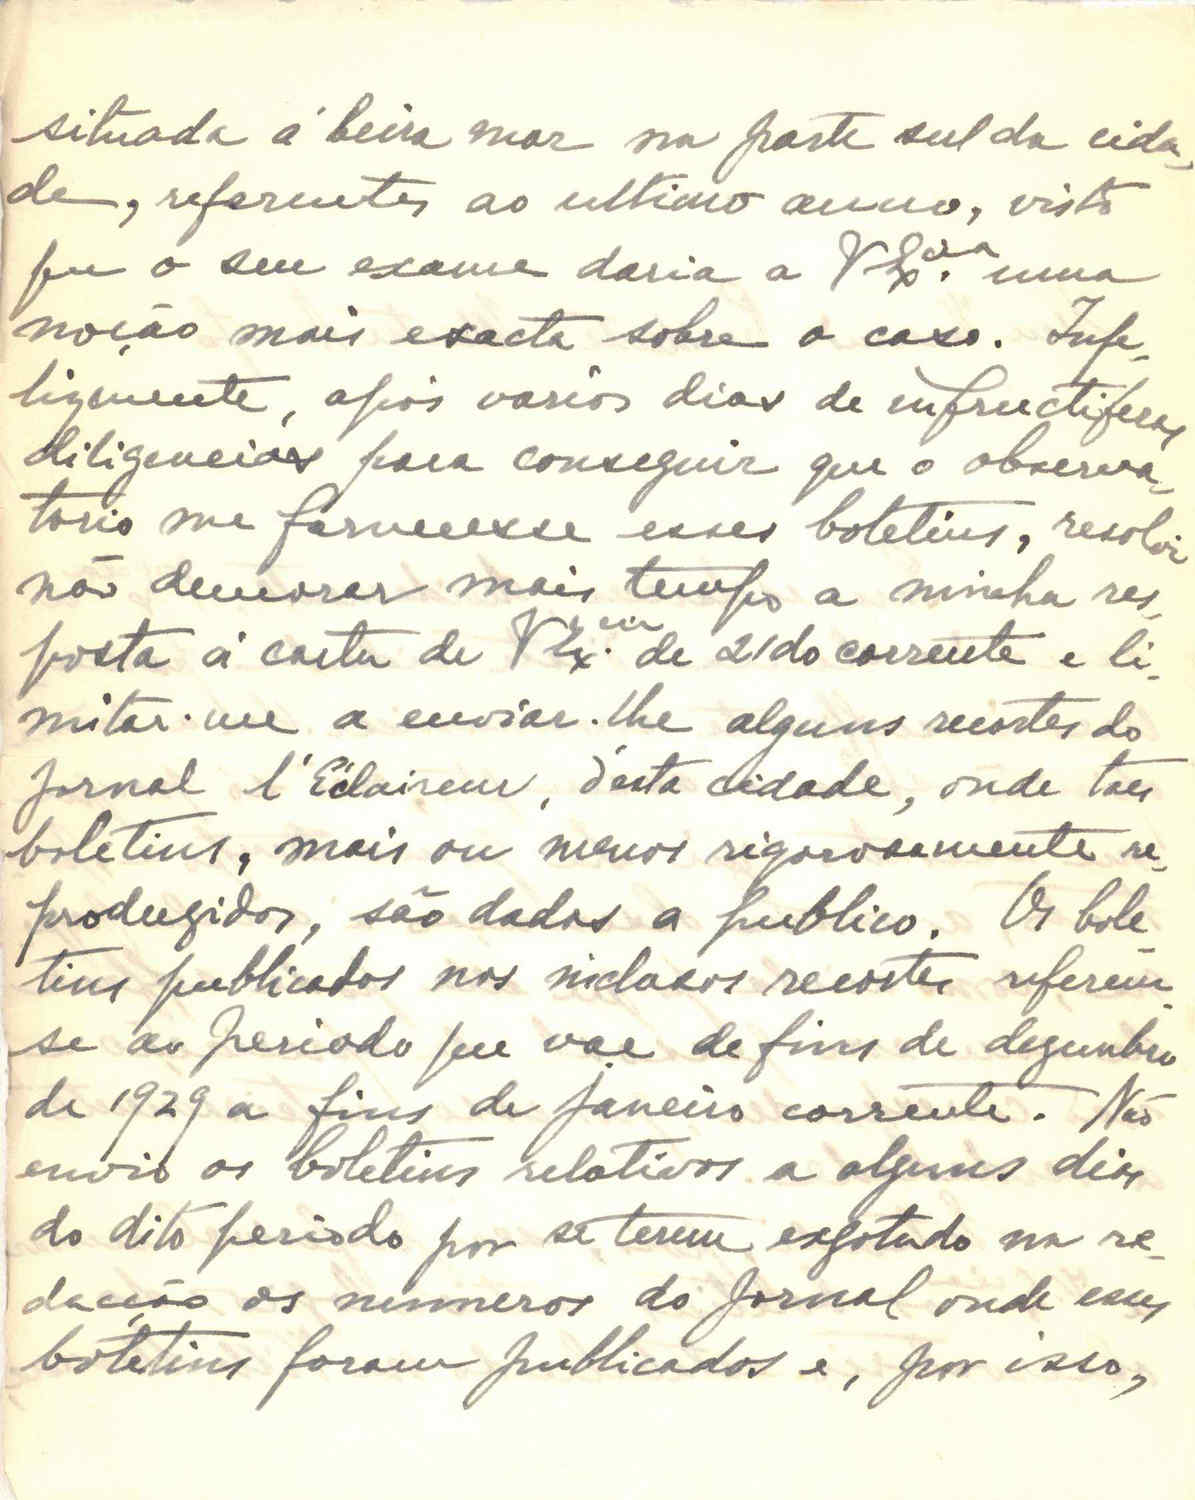 situada á beira mar na parte sul da cida-
de, referentes ao ultimo anno, visto
que o seu exame daria a V Ex.cia uma
noção mais exacta sobre o caso. Infe-
lizmente, após varios dias de infructiferas
diligencias para conseguir que o observa-
torio me fornecesse esses boletins, resolvi
não demorar mais tempo a minha res-
posta á carta de V Ex.cia de 21 do corrente e li-
mitar-me a enviar-lhe alguns recortes do
jornal l'Éclaireur, d'esta cidade, onde taes
boletins, mais ou menos rigorosamente re-
produzidos, são dados a publico. Os bole-
tins publicados nos inclusos recortes referem-
se ao periodo que vae de fins de dezembro
de 1929 a fins de janeiro corrente. Não
envio os boletins relativos a alguns dias
do dito periodo por se terem esgotado na re-
dacção os numeros do jornal onde esses
boletins foram publicados e, por isso,